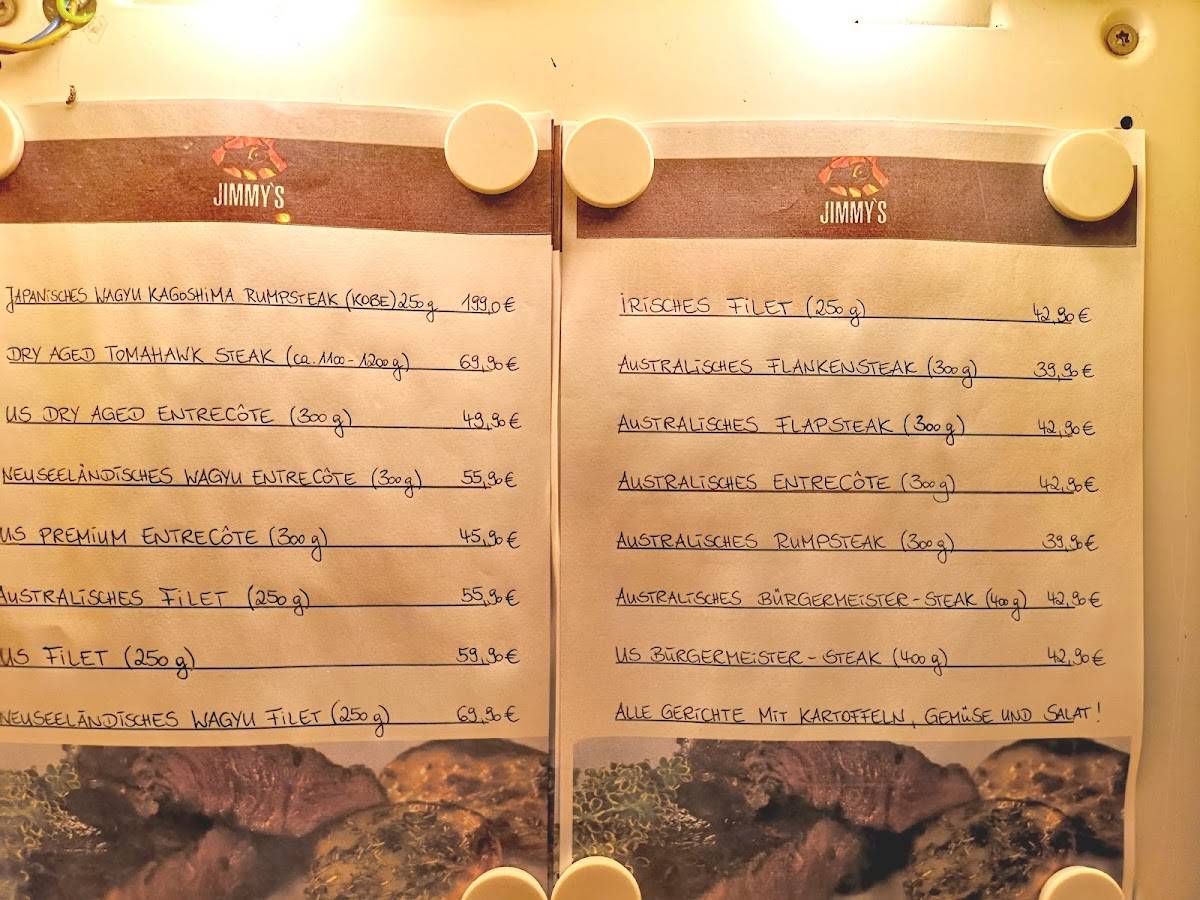 JIMMY`S
JAPANISCHES WAGYU KAGOSHIMA RUMPSTEAK (KOBE) 250 g 199,0 €
DRY AGED TOMAHAWK STEAK (ca. 1100 - 1200 g) 69,90 €
US DRY AGED ENTRECÔTE (300 g) 49,90 €
NEUSEELÄNDISCHES WAGYU ENTRECÔTE (300 g) 55,90 €
US PREMIUM ENTRECÔTE (300 g) 45,90 €
AUSTRALISCHES FILET (250 g) 55,90 €
US FILET (250 g) 59,90 €
NEUSEELÄNDISCHES WAGYU FILET (250 g) 69,90 €
JIMMY`S
IRISCHES FILET (250 g) 42,90 €
AUSTRALISCHES FLANKENSTEAK (300 g) 39,90 €
AUSTRALISCHES FLAPSTEAK (300 g) 42,90 €
AUSTRALISCHES ENTRECÔTE (300 g) 42,90 €
AUSTRALISCHES RUMPSTEAK (300 g) 39,90 €
AUSTRALISCHES BÜRGERMEISTER - STEAK (400 g) 42,90 €
US BÜRGERMEISTER - STEAK (400 g) 42,90 €
ALLE GERICHTE MIT KARTOFFELN, GEMÜSE UND SALAT!